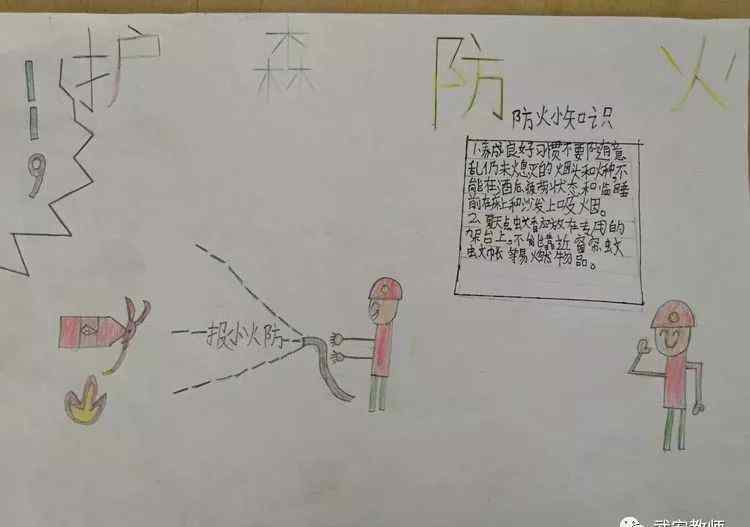 护 森 防 火
119
防火小知识
1.养成良好习惯不要随意
乱仍未熄灭的烟头和火种,不
能在酒后、疲劳状态和临睡
前在床上和沙发上吸烟。
2、夏天点蚊香应放在专用的
架台上。不能靠近窗帘、蚊
帐等易燃物品。
报小火防
武安教师